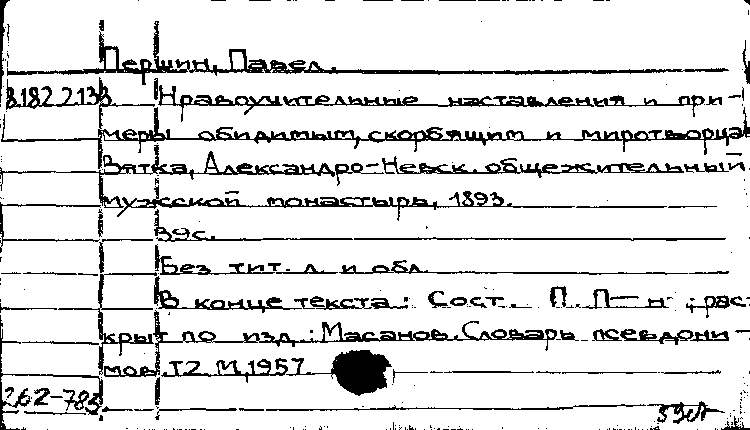 Першин, Павел.
Нравоучительные наставления и при-
меры обидимым, скорбящим и миротворцам
Вятка, Александро-Невск. общежительный
мужской монастырь, 1893.
39с.
Без тит. л. и обл.
В конце текста: Сост. П. П—н ; рас
крыт по изд.: Масанов. Словарь псевдони-
мов. Т.2 М, 1957.
262-783